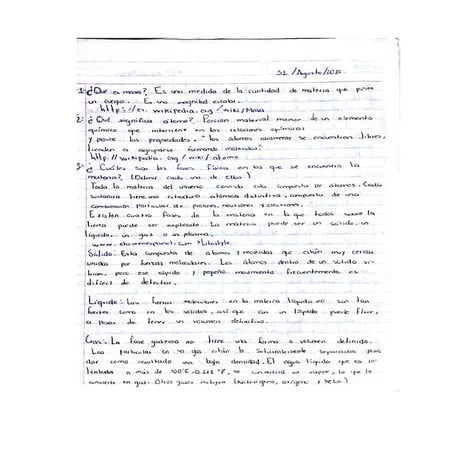 31 /Agosto/2015.
1- ¿Que es masa?. Es una medida de la cantidad de materia que posee
un cuerpo. Es una magnitud escalar.
http://es. wikipedia. org / wiki / Masa
2- ¿Qué significa atomo?. Porcion material menor de un elemento
químico que interviene en las reacciones químicas
y posee las propiedades. Los atomos raramente se encuentran libres,
tienden a agruparse formando moleculas.
http // wikipedia. org / wiki / atomo.
3- ¿ Cuáles son las fases física en los que se encuentra la
materia?. (Definir cada una de ellas)
Toda la materia del universo conocido esta compuesta por atomos. Cada
sustancia tiene una estructura atómica distintiva, compuesta de una
combinación particular de protones, neutrones y electrones.
Existen cuatro fases de la materia en la que todos sobre la
tierra puede ser explicada. La materia puede ser un solido, un
líquido, un gas o un plasma.
www. ehowenespanol. com
Sólido: Esta compuesta de atomos y moleculas que están muy cerca
unidas por fuerzas moleculares. Los átomos dentro de un solido vi-
bran, pero ese rápido y pequeño movimiento frecuentemente es
difícil de detectar.
Líquido: Las fuerzas moleculares en la materia líquida no son tan
fuertes como en los sólidos, así que un líquido puede fluir,
a pesar de tener un volumen definitivo.
Gas: La fase gaseosa no tiene una forma o volumen definido.
Las particulas en un gas están lo suficientemente separadas para
dar como resultado una baja densidad. El agua líquida que es ca-
lentada a más de 100°C, o 212 °F, se convertirá en vapor, lo que la
convierte en gas. Otros gases incluyen (nitrógeno, oxigeno y helio)